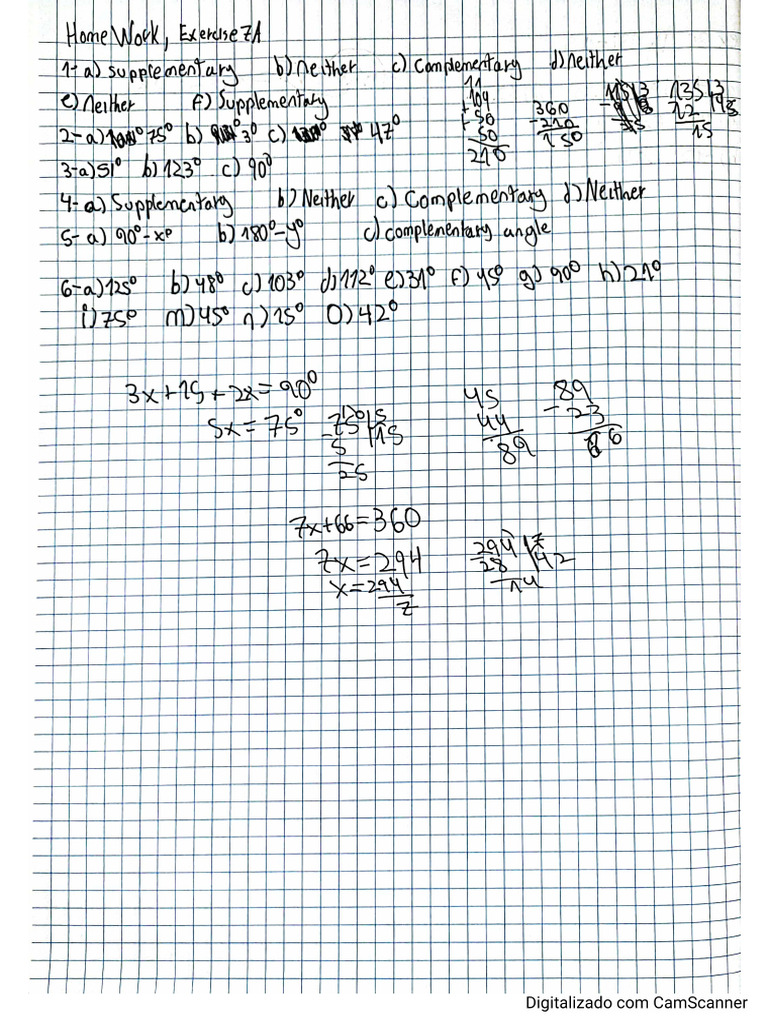 Home Work, Exercise 7A
1-a) supplementary b) neither c) Complementary d) neither
e) Neither f) Supplementary
2-a) 75° b) 3° c) 47°
3-a) 51° b) 123° c) 90°
4-a) Supplementary b) Neither c) Complementary d) Neither
5-a) 90°-x° b) 180°-y° c) complementary angle
6-a) 125° b) 48° c) 103° d) 112° e) 31° f) 45° g) 90° h) 21°
i) 75° m) 45° n) 15° o) 42°
11
+104
+50
50
210
360
-210
150
135 3
12 45
15
3x+15+2x=90°
5x=75°
75 5
-5 15
25
45
44
89
89
-23
66
7x+66=360
7x=294
x=294
7
294 7
28 42
14
Digitalizado com CamScanner